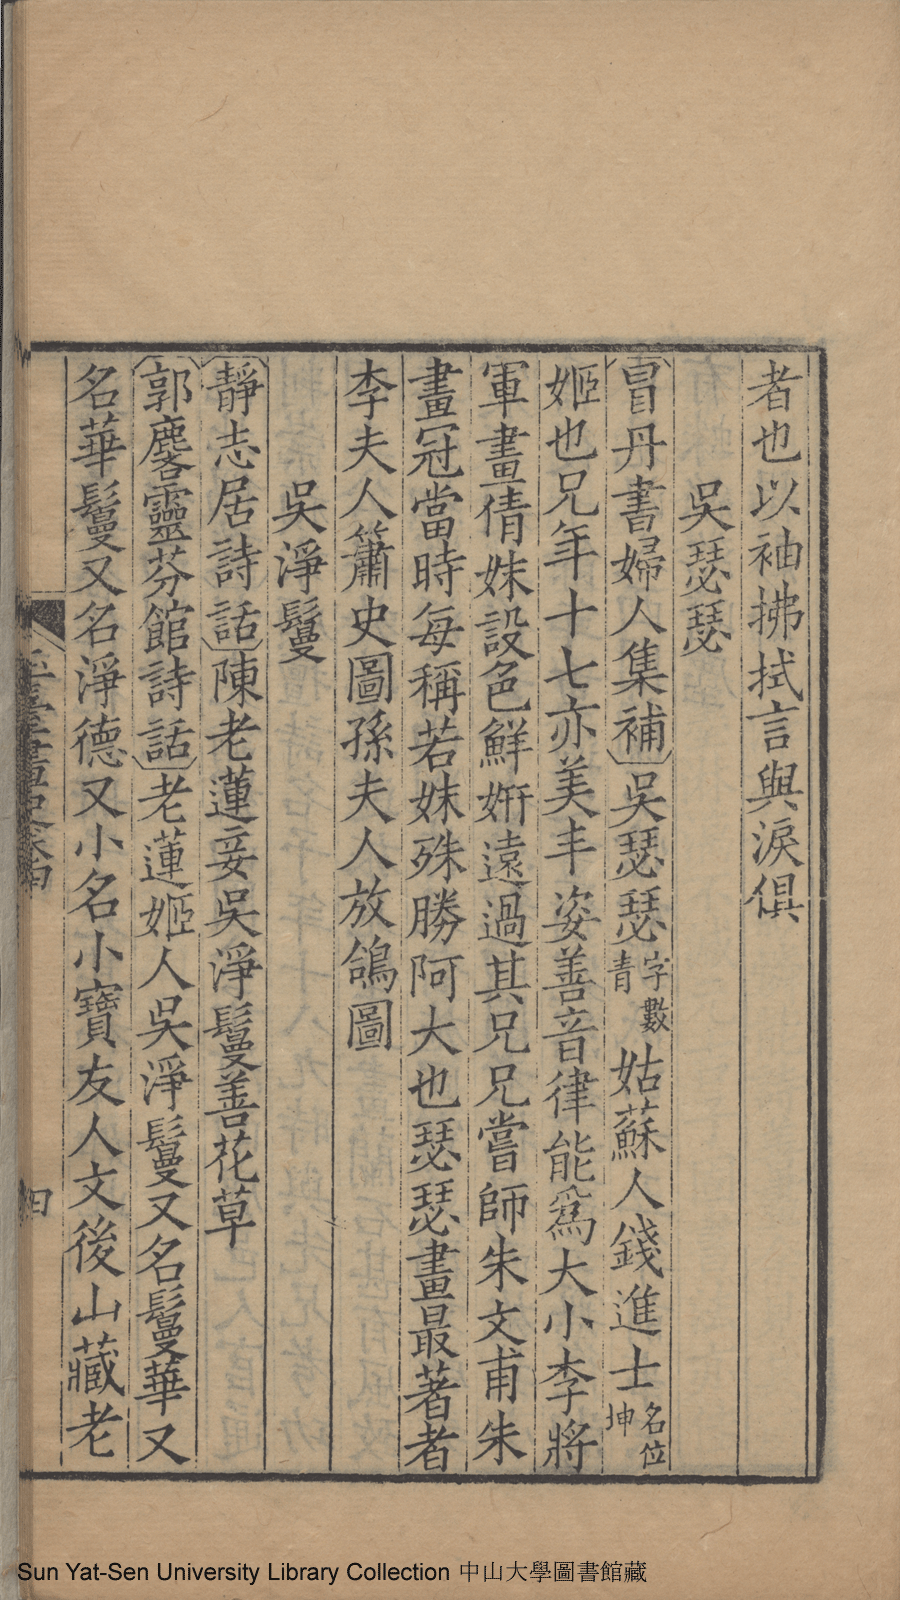 者也以袖拂拭言與淚俱
吳瑟瑟
冒丹書婦人集補吳瑟瑟字數青姑蘇人錢進士名位坤
姬也兄年十七亦美丰姿善音律能爲大小李將
軍畫倩妹設色鮮妍遠過其兄兄嘗師朱文甫朱
畫冠當時每稱若妹殊勝阿大也瑟瑟畫最著者
李夫人簫史圖孫夫人放鴿圖
吳淨鬘
靜志居詩話陳老蓮妾吳淨鬘善花草
郭麐靈芬館詩話老蓮姬人吳淨鬘又名鬘華又
名華鬘又名淨德又小名小寶友人文後山藏老
四
Sun Yat-Sen University Library Collection 中山大學圖書館藏